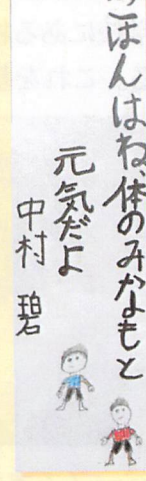 ごはんはね、体のみかなもと
元気だよ
中村 碧